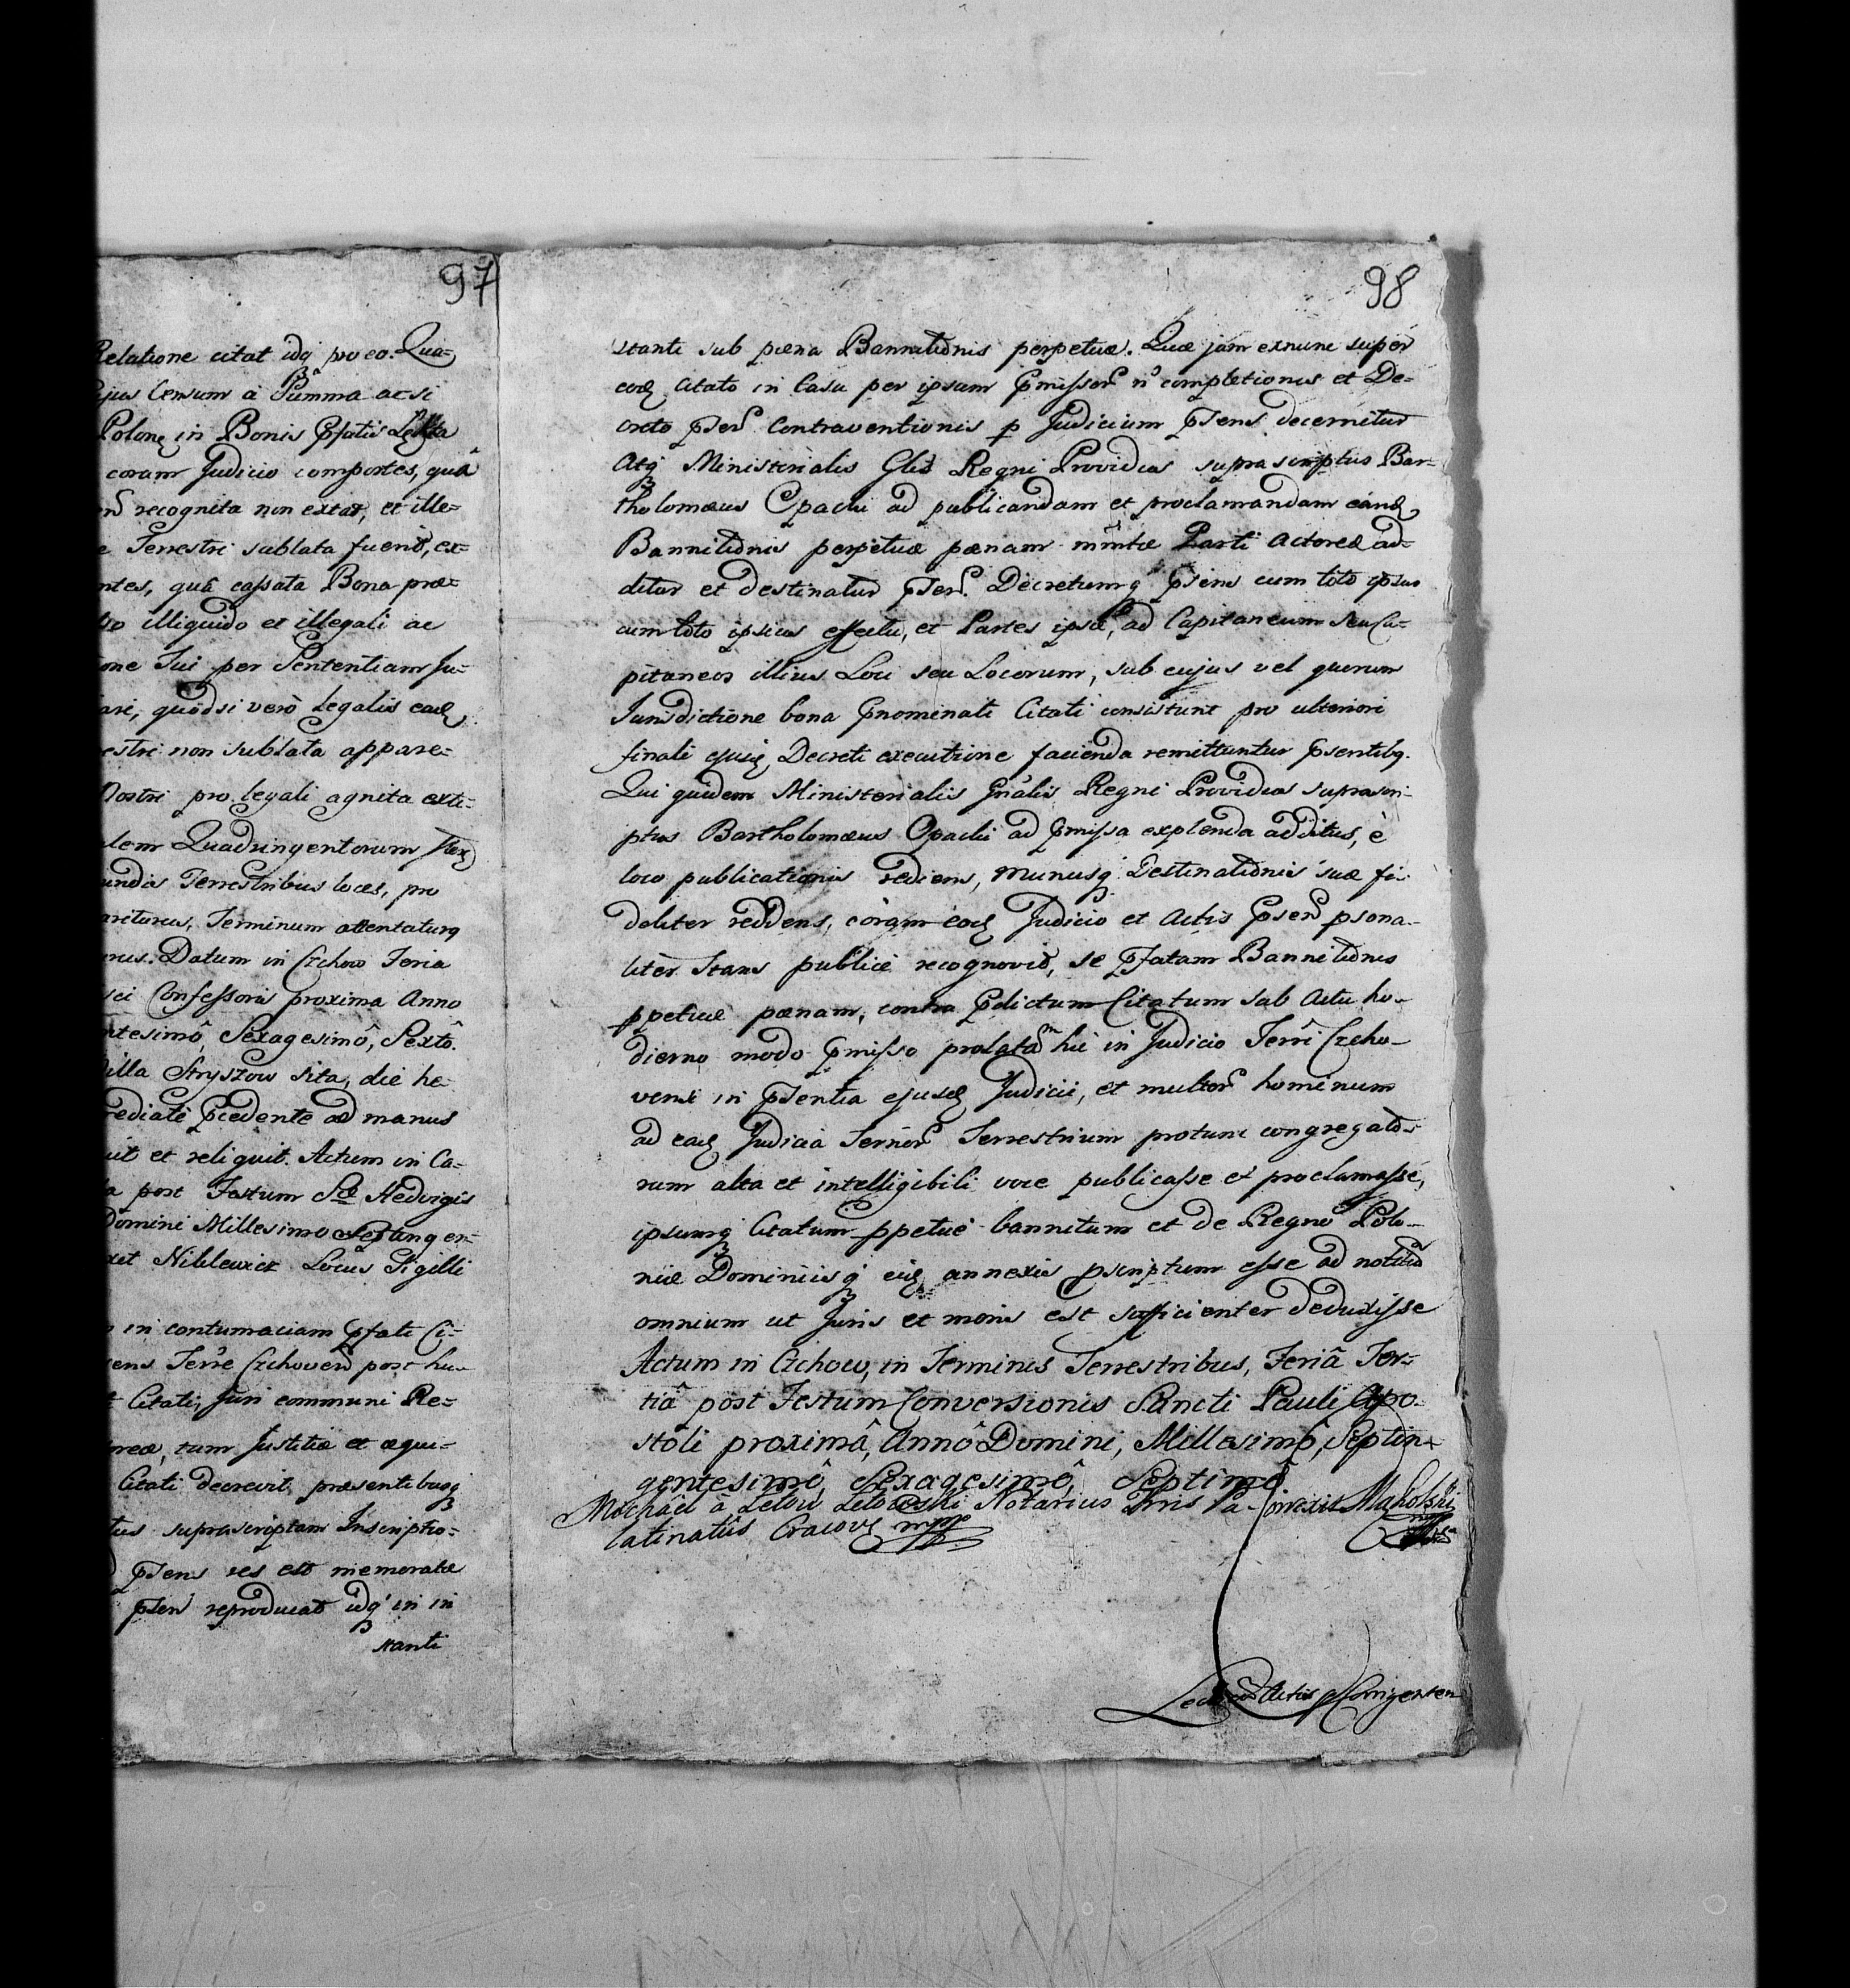 97
Relatione citat idq pro eo. Qua-
ejus Censum à Summa ac si
Polone in Bonis Pfatis
coram Judicio comportes, quâ
recognita non extat, et ille-
Terrestri sublata fuerit, ex-
ntes, quâ cassata Bona præ-
illiquido et illegali ac
one Sui per Sententiam Ju-
ari, quodsi verò Legalis ead
estri non sublata appare-
Nostri pro legali agnita exti-
lem Quadringentorum
undis Terrestribus loces, pro
ariturus, Terminum attentaturq
rus. Datum in Czchow Feria
sci Confessoris proxima Anno
ntesimô, Sexagesimô, Sextô.
Villa Stryszow sita, die he-
mediatè Pcedente ad manus
uit et reliquit. Actum in Ca-
a post Festum Stæ Hedvigis
Domini Millesimo Septingen-
xit Niklewicz Locus Sigilli
in contumaciam Pfati Ci-
sens Terræ Czchoven post hu-
Citati, Juri communi Re-
oreæ, tum Justitiæ et æqui-
Citati decrevit, præsentibusq
tus suprascriptam Inscriptio-
Psens res est memoratæ
Psen reproducat idq in in
stanti
98
stanti sub pæna Bannitionis perpetuæ. Quæ jam exnunc super
eod Citato in Casu per ipsum Pmissor n completionis et De-
creto Pser Contraventionis p Judicium Psens decernitur
Atq Ministerialis Glis Regni Providus suprascriptus Bar-
tholomæus Opachi ad publicandam et proclamandam eand
Bannitionis perpetuæ pænam mmtæ Parti Actoreæ ad-
ditur et destinatur Pser. Decretumq Psens cum toto ipsius
cum toto ipsius effectu, et Partes ipsæ, ad Capitaneum seu Ca-
pitaneos illius Loci seu Locorum, sub cujus vel quorum
Jurisdictione bona Pnominati Citati consistunt pro ulteriori
finali ejusd Decreti executione facienda remittuntur Psentibq.
Qui quidem Ministerialis Gnalis Regni Providus suprascri-
ptus Bartholomæus Opachi ad Pmissa explenda additus, è
loco publicationis rediens, munusq Destinationis suæ fi-
deliter reddens, coram eod Judicio et Actis Psen psona-
liter stans publicè recognovit, se Pfatam Bannitionis
ppetuæ pænam, contra Pdictum Citatum sub Actu ho-
dierno modo Pmisso prolatam hic in Judicio Terri Czcho-
vensi in Psentia ejusd Judicii, et multor hominum
ad ead Judicia Terminor Terrestrium protunc congregato-
rum alta et intelligibili voce publicasse et proclamasse,
ipsumq Citatum ppetuè bannitum et de Regno Polo-
niæ Dominiisq eid annexis pscriptum esse ad notitiam
omnium ut Juris et moris est sufficienter deduxisse
Actum in Czchow, in Terminis Terrestribus, Feriâ Ter-
tiâ post Festum Conversionis Sancti Pauli Apo-
stoli proximâ, Annô Domini, Millesimô, Septin-
gentesimô, Sexagesimô, Septimô
Michael à Letow Letowski Notarius Trris Pa-
latinatûs Cracov mpp
Correxit Makolski
mpp
Lect cum Actis Corrigenten